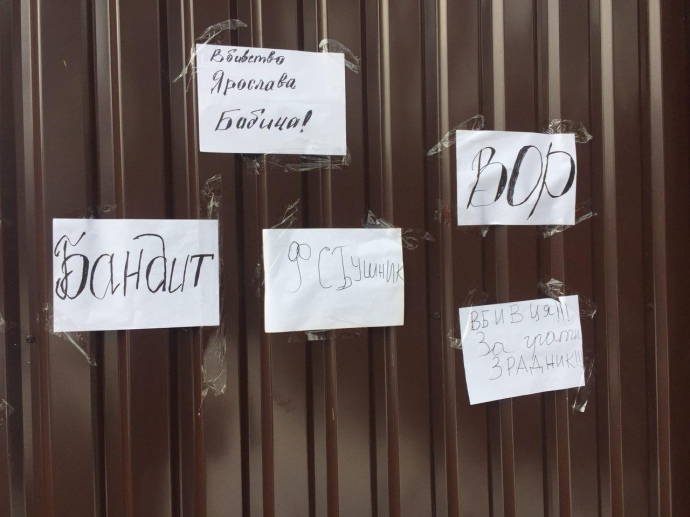 Вбивство
Ярослава
Бабича!
ВОР
Бандит
ФСБУШНИК
ВБИВЦЯ!!!
За грати
ЗРАДНИК!!